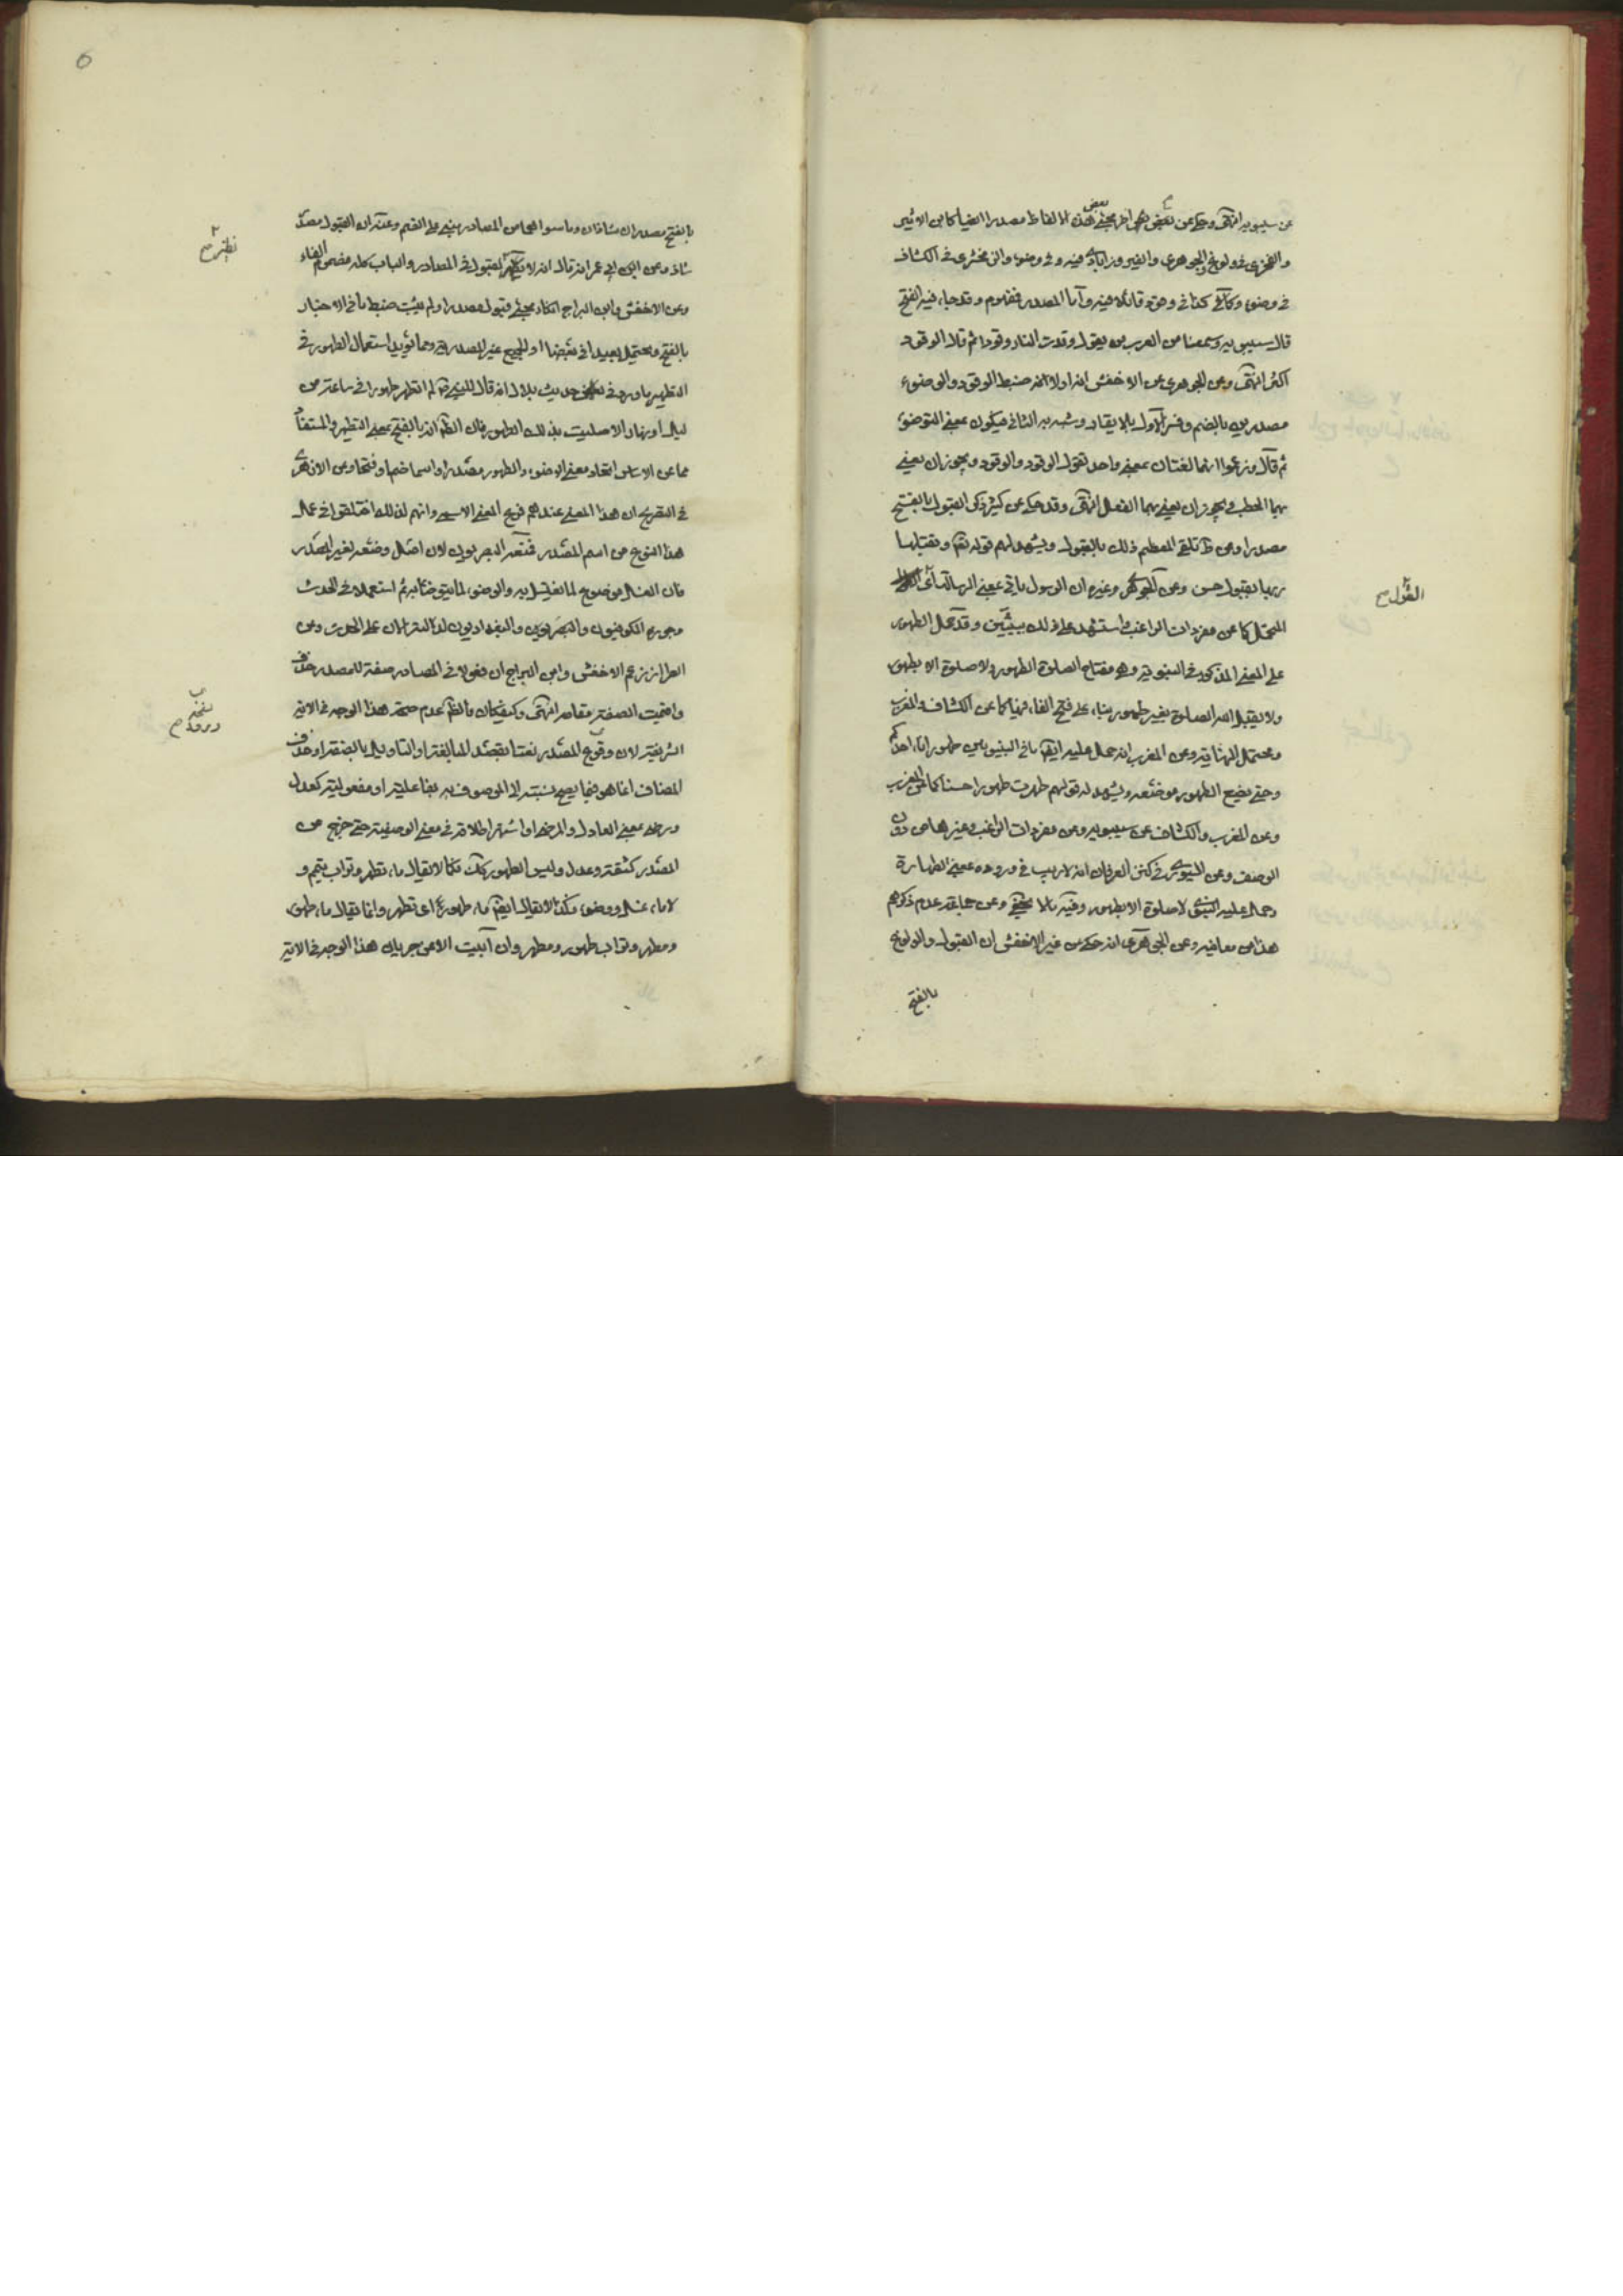 عن سيبويه انتهى وحكى عن بعض مجئ بعض هذه الالفاظ مصدرا ايضا كابن الاثير
في ولوغ والجوهرى والفيروزابادى فيه وفى وضوء والزمخشرى فى الكشاف
فى وضوء وكذا فى وقود قائلا فيه واما المصدر فمضموم وقد جاء فيه الفتح
قال سيبويه وسمعنا من العرب من يقول وقدت النار وقودا ثم قال الوقود
اكثر انتهى وعن الجوهرى عن الاخفش انه اولا ضبط الوقود والوضوء
مصدرين بالضم وفسر الاول بالايقاد وشبه به الثانى فيكون بمعنى التوضوء
ثم قال وزعموا انهما لغتان بمعنى واحد تقول الوقود والوقود ويجوز ان يعنى
بهما الحطب ويجوز ان يعنى بهما الفعل انتهى وقد حكى عن كثير ذكر القبول بالفتح
مصدرا وعن تلقى المعظم ذلك بالقبول ويشهد لهم قوله تعالى وتقبلها
ربها بقبول حسن وعن الجوهرى وغيره ان الرسول ياتى بمعنى الرسالة
المحتمل كما عن مفردات الراغب واستشهد على ذلك ببيتين وقد حمل الطهور
على المعنى المذكور فى النبوية وهو مفتاح الصلوة الطهور ولا صلوة الا بطهور
ولا يقبل الله الصلوة بغير طهور بناء على فتح الفاء فيها كما عن الكشاف والمغرب
وعن المغرب انه حمل عليه ايضا ما فى النبويين طهور اناء احدكم
وحتى يضع الطهور موضعه ويشهد له قولهم طهرت طهورا حسنا كما عن المغرب
وعن المغرب والكشاف عن سيبويه وعن مفردات الراغب وغيرها من دون
الوصف وعن السيورى فى كنز العرفان انه لا ريب فى وروده بمعنى الطهارة
وحمل عليه النبوى لا صلوة الا بطهور وفيه ما لا يخفى وعن جماعة عدم ذكرهم
هذا من معانيه وعن الجوهرى انه حكى عن غير الاخفش ان القبول والولوع
بالفتح
القول
بالفتح مصدران شاذان وما سواهما من المصادر مبنى على الضم وعنه ان القبول مصدر
شاذ وعن ابى عمرو انه قال انه لا نظير لقبول فى المصادر والباب كله مضموم الفاء
وعن الاخفش وابن السراج انكار مجئ قبول مصدرا ولم يثبت ضبط ما فى الاخبار
بالفتح ويحتمل بعيدا فى بعضها او الجميع غير المصدر ومما يؤيد استعمال الطهور فى
التطهير ما ورد فى بعض حديث بلال انه قال للنبى لم اتطهر طهورا فى ساعة من
ليل او نهار الا صليت بذلك الطهور فان الظ انه بالفتح بمعنى التطهر والمستفاد
مما عن الاساس اتحاد معنى الوضوء والطهور مصدرا واسما ضما وفتحا وعن الازهرى
فى التصريح ان هذا المعنى عندهم فرع المعنى الاسمى وانهم لذلك اختلفوا فى عمل
هذا النوع من اسم المصدر فمنعه البصريون لان اصل وضعه لغير المصدر
فان الغسل موضوع لما يغتسل به والوضوء لما يتوضأ به ثم استعملا فى الحدث
وجوزه الكوفيون والبغداديون لدلالته الان على الحدث وعن
الطراز زعم الاخفش وابن السراج ان فعولا فى المصادر صفة للمصدر حذف
واقيمت الصفة مقامه انتهى وكيف كان فالظ عدم صحة هذا الوجه فى الاية
الشريفة لان وقوع المصدر نعتا بقصد المبالغة او التاويل بالصفة او حذف
المضاف انما هو فيما يصح نسبته الى الموصوف به بفاعلية او مفعولية كعدل
ورضى بمعنى العادل والمرضى او اشتهر اطلاقه فى معنى الوصفية حتى خرج من
المصدر كثقة وعدل وليس الطهور كك فكما لا يقال ماء تطهر وتراب تيمم و
لا ماء غسل ووضوء فكذا لا يقال ايضا ماء طهور اى تطهر وانما يقال ماء طهور
ومطهر وتراب طهور ومطهر وان ابيت الا عن جريان هذا الوجه فى الاية
نظير